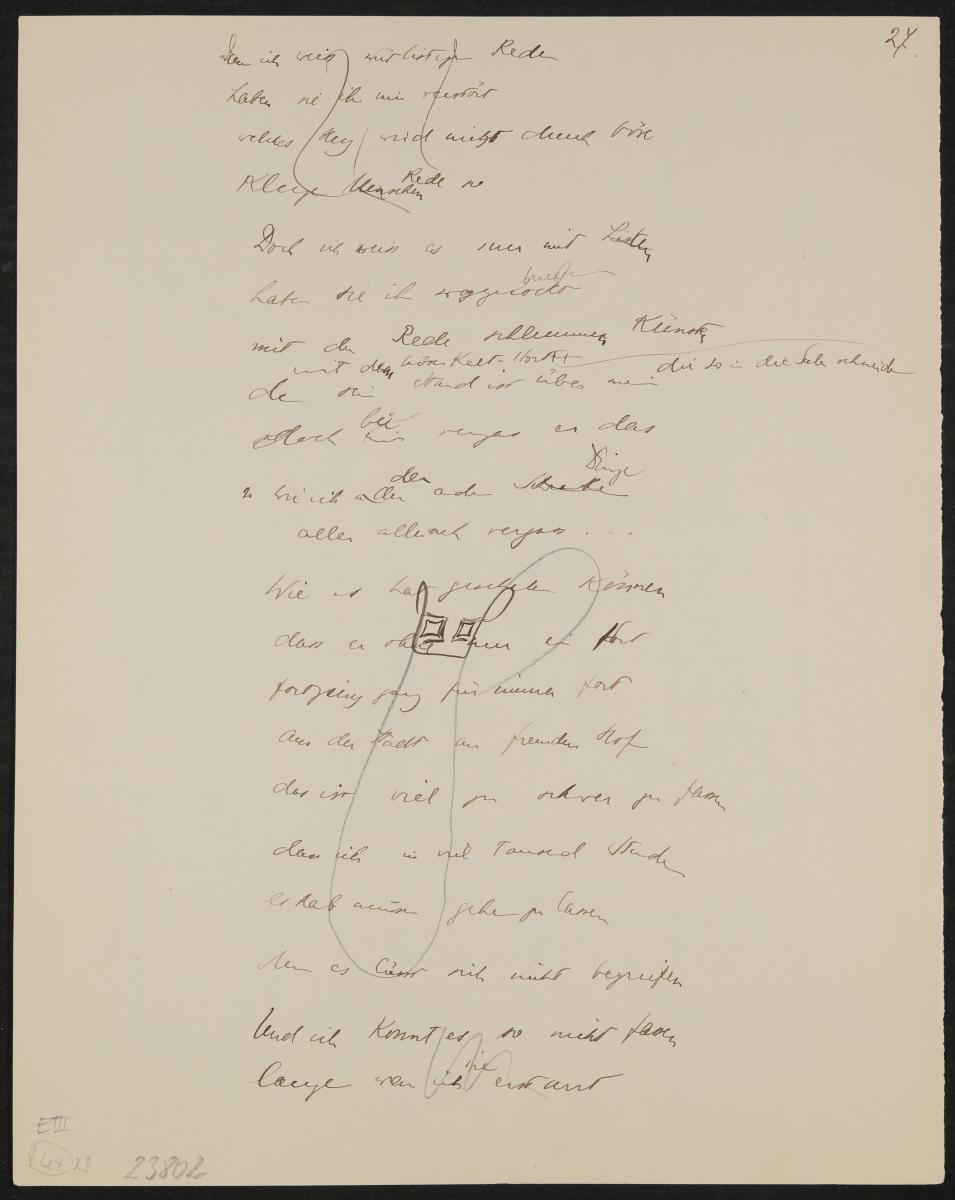 27.
Denn ich weiss mit listigen Reden
haben sie ihn mir verstört
welches Herz wird nicht durch böse
Kluge Menschen Rede so
Doch ich weiss es nur mit Listen
haben sie ihn weggelockt
mit der Rede schlimmen Künsten
mit dem bösen Kalt-Wort die so in die Seele schneiden
der sein Stand ist über mein
doch bei mir vergas er das
u wie ich alle der andern Schranke Dinge
alles allemach vergass . . .
Wie es hat geschehen Können
dass er ohne nur ein Wort
fortging ganz für immer fort
aus der Stadt an fremden Hof
das ist viel zu schwer zu fassen
dass ich in viel Tausend Stunden
es hab müssen gehen zu lassen
denn es lässt sich nicht begreifen
Und ich Konnt es so nicht fassen
lange war ich wie erstarrt
E III
44 28
23802